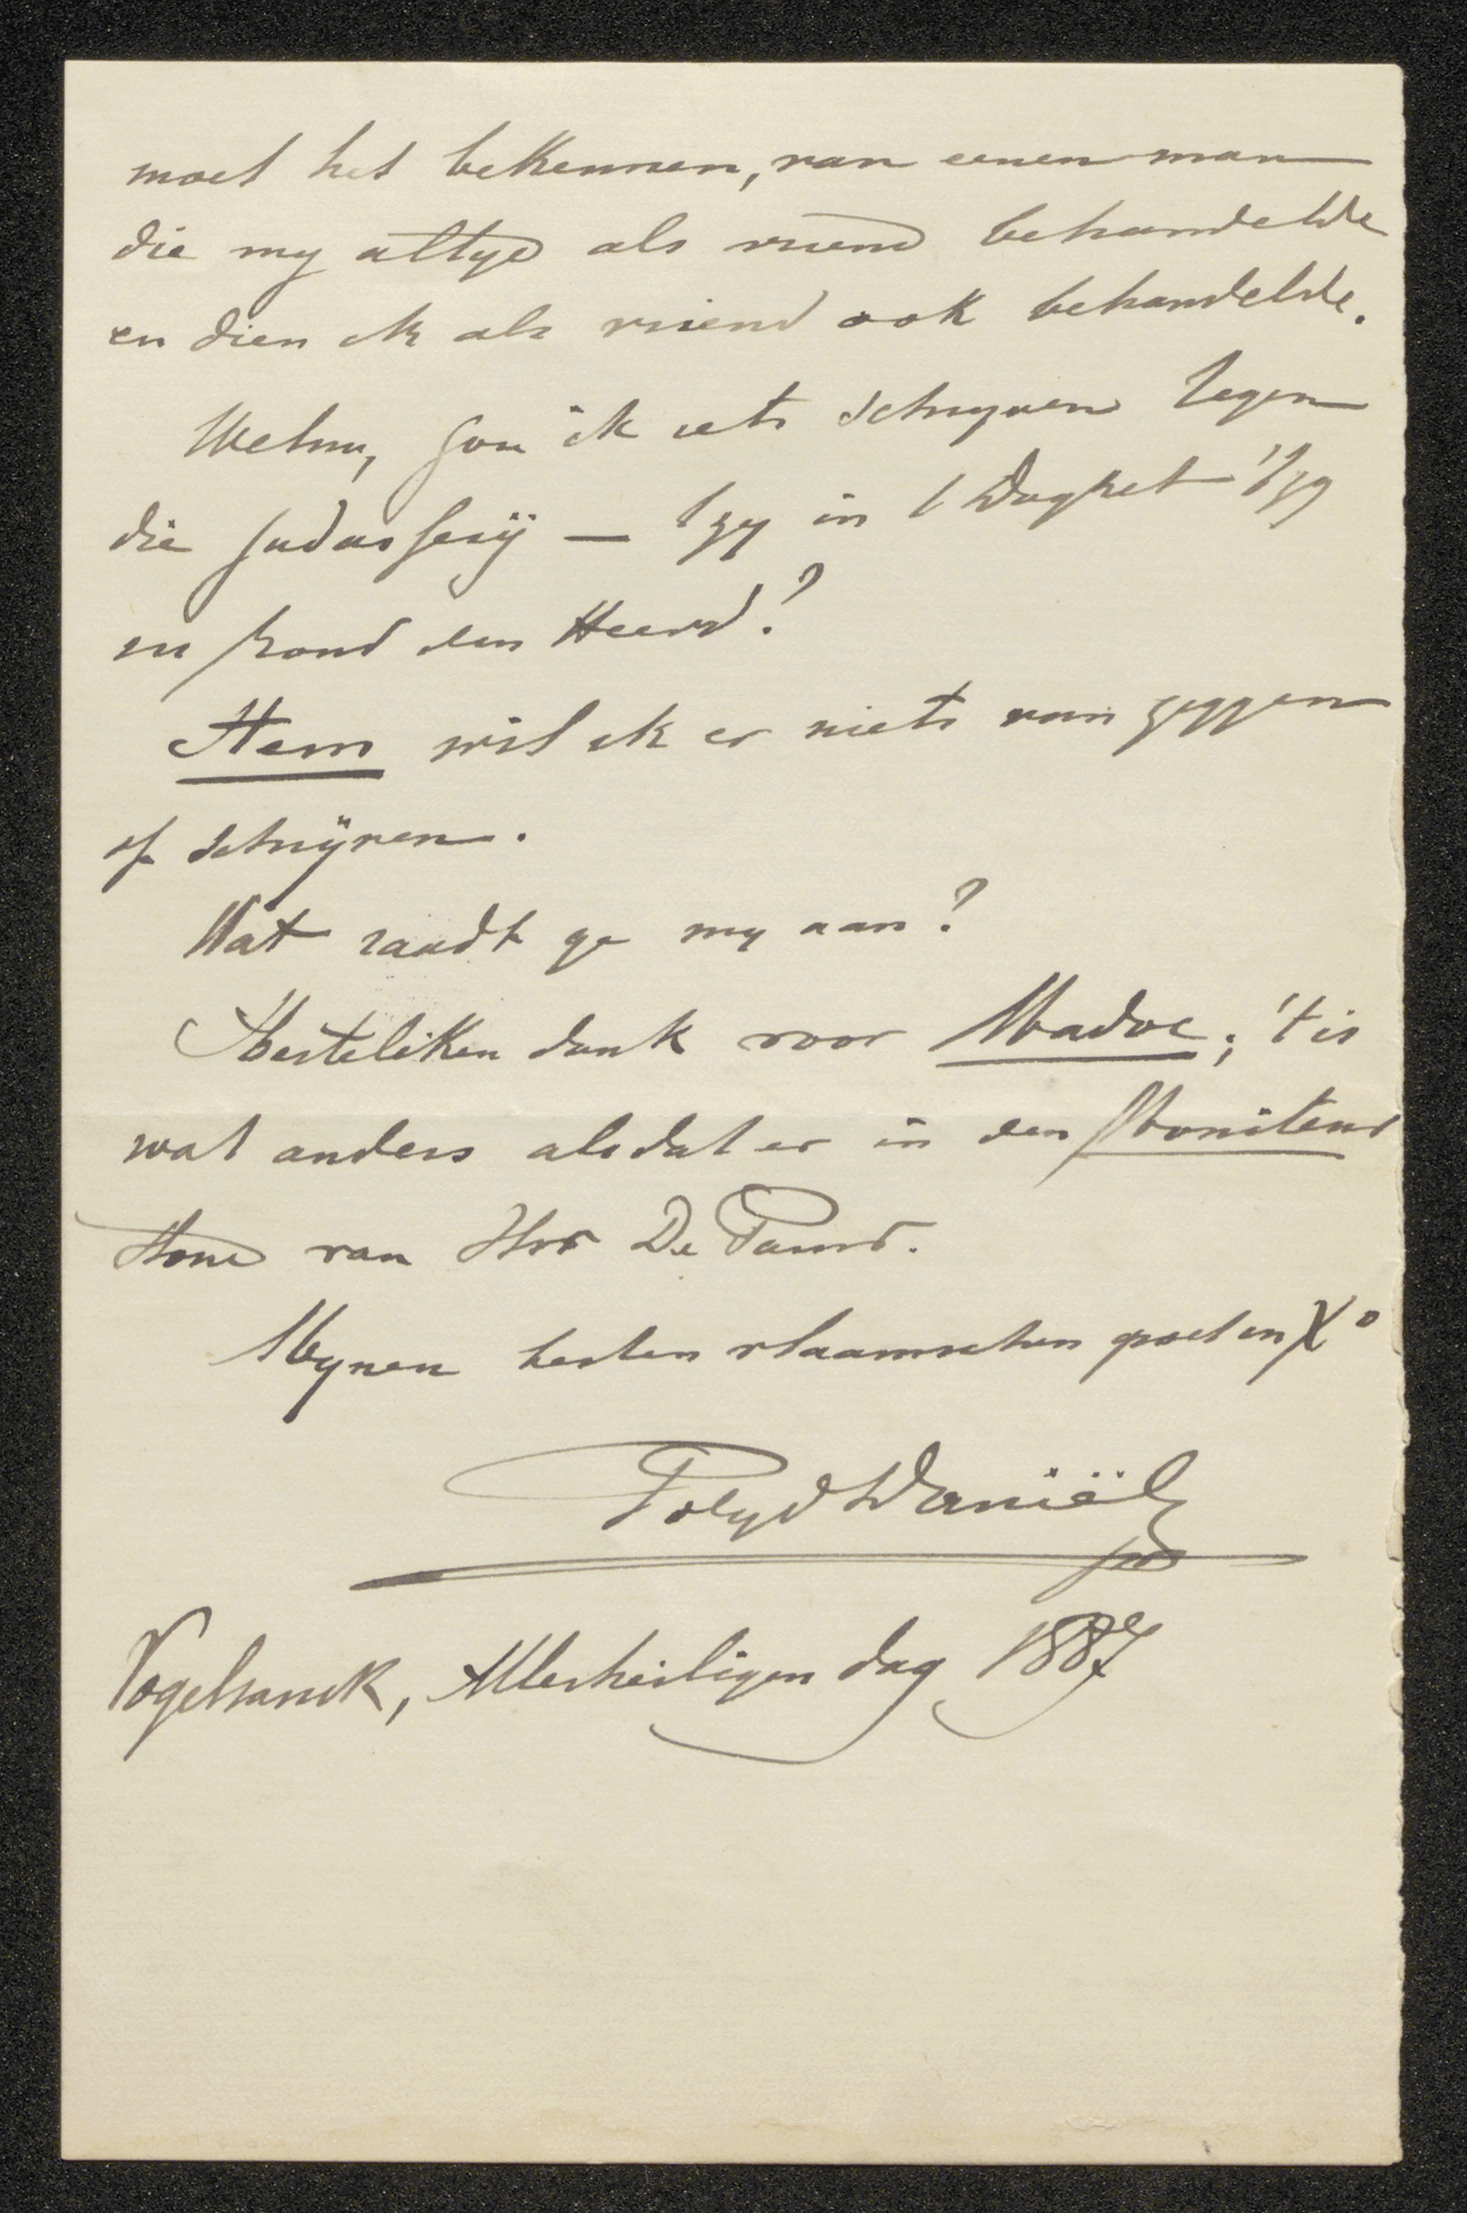 moet het bekennen, van eenen man
die my altyd als vriend behandelde
en dien ik als vriend ook behandelde.
Welnu, zou ik iets schryven tegen
die Judasserij — 't zy in 't Daghet 't zy
in Rond den Heerd?
Hem wil ik er niets van zeggen
of schrijven.
Wat raadt ge my aan?
Herteliken dank voor Madoc; 't is
wat anders als dat er in den Moniteur
stond van Hr De Pauw.
Mynen besten vlaamschen groet in Xº
Polyd Daniëls
pr
Vogelsanck, Allerheiligen dag 1887